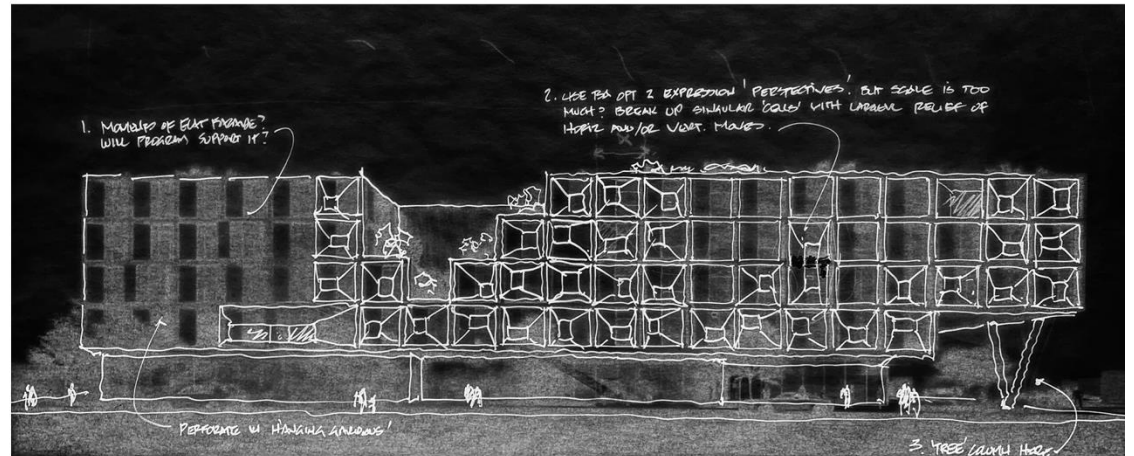 1. MOMENTS OF FLAT FACADE?
WILL PROGRAM SUPPORT IT?
2. USE OPT 2 EXPRESSION 'PERSPECTIVES'. BUT SCALE IS TOO
MUCH? BREAK UP SINGULAR 'CELLS' WITH LARGER RELIEF OF
HORIZ AND/OR VERT. MOVES.
PERFORATE W/ HANGING GARDENS'
3. 'TREE' COLUMN HERE.